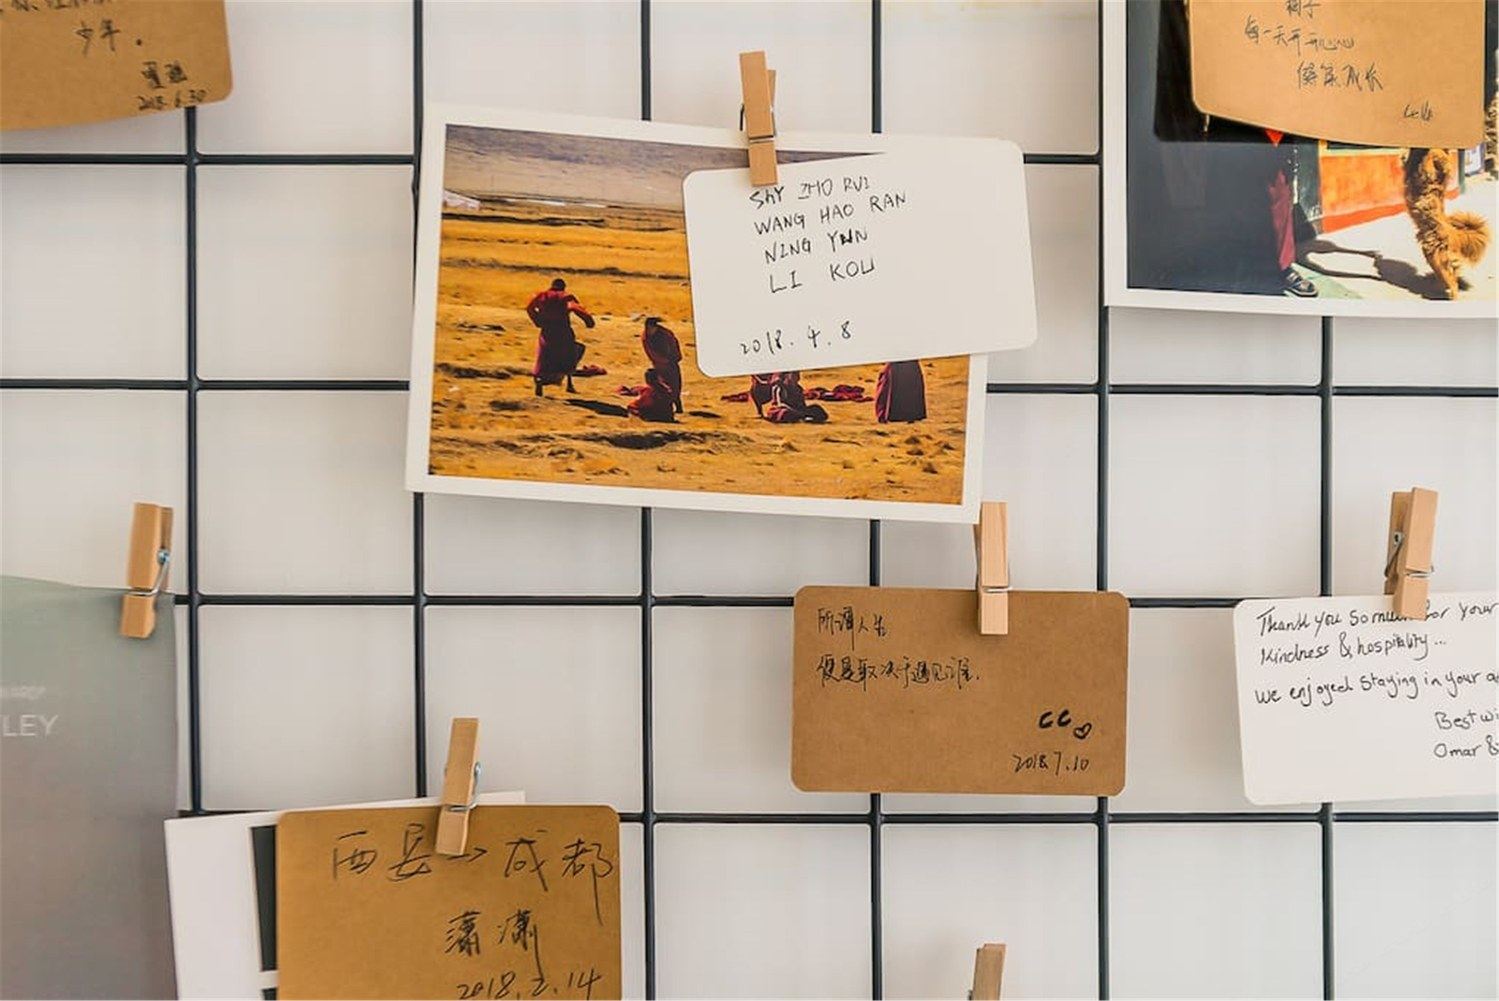 少年。
2018.6.30
每一天开开心心
SHY ZHO RUI
WANG HAO RAN
NING YUN
LI KOU
2018.4.8
所谓人生
便是取决于遇见谁.
CC
2018.7.10
Thank you so much for your
kindness & hospitality...
We enjoyed staying in your
Best
Omar &
LEY
西昌→成都
潇潇
2018.2.14